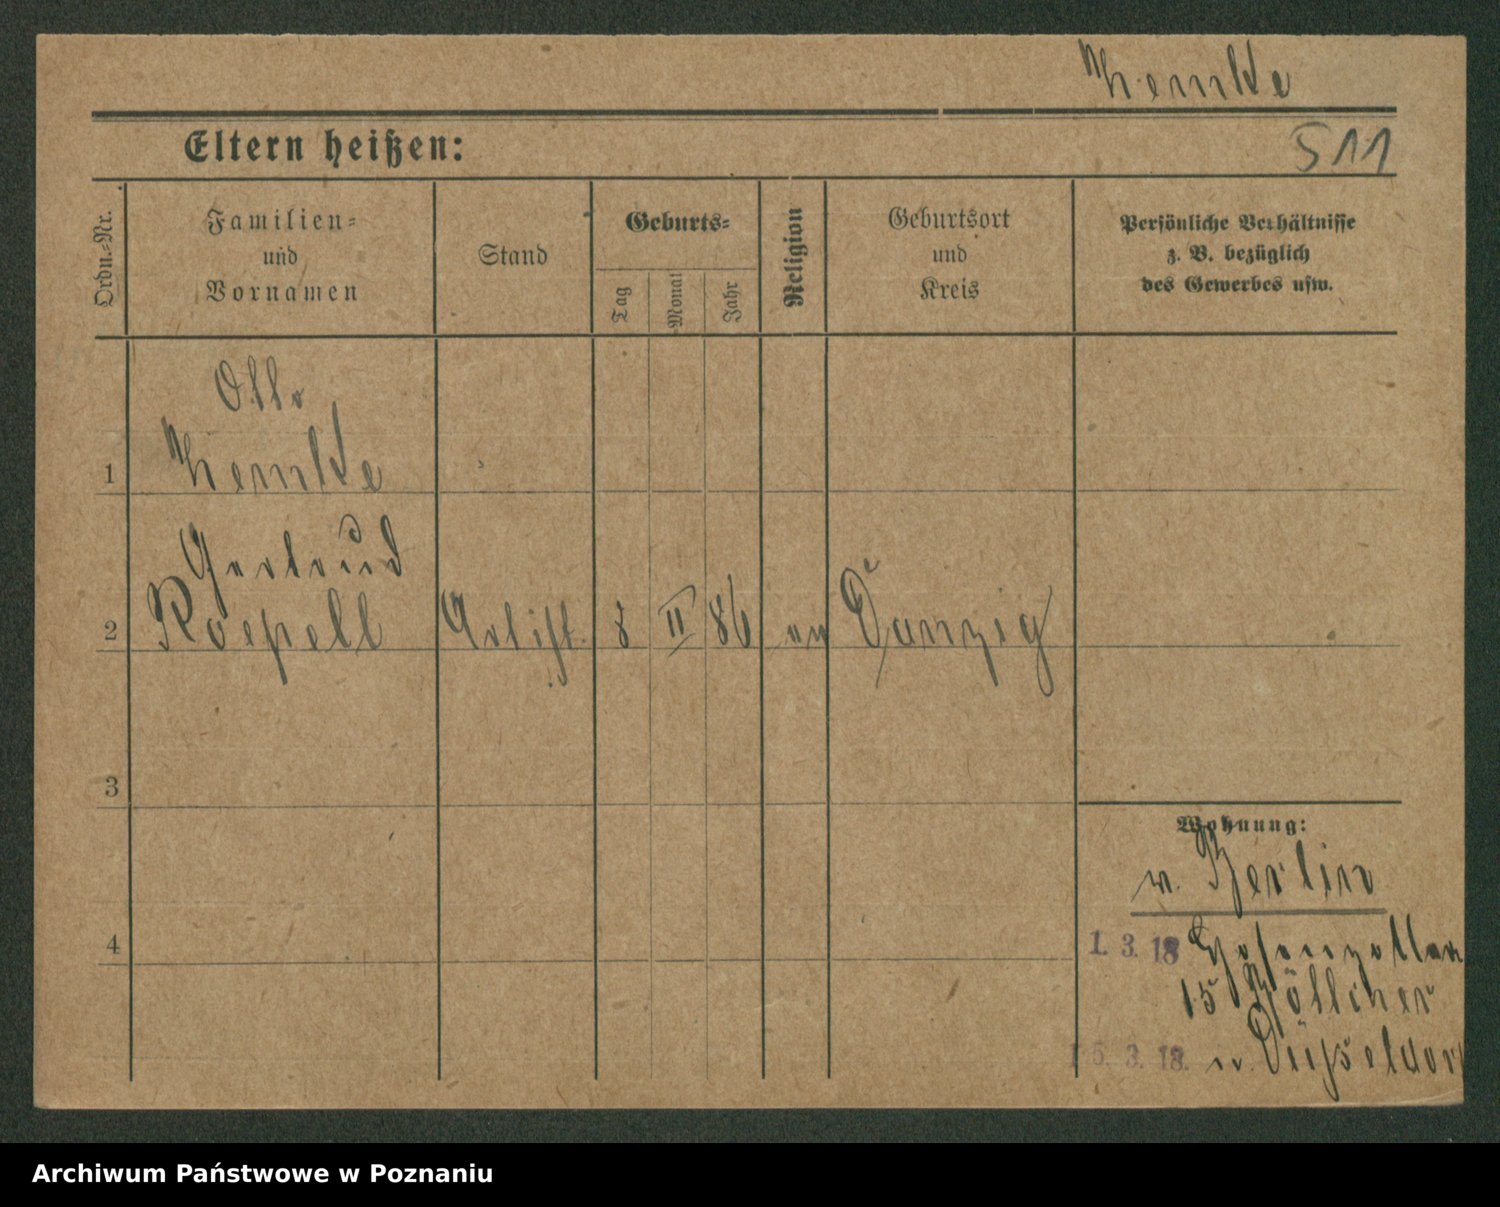 Zemke
511
Eltern heißen:
Ordn.-Nr.
Familien-
und
Vornamen
Stand
Geburts-
Tag
Monat
Jahr
Religion
Geburtsort
und
Kreis
Persönliche Verhältnisse
z. B. bezüglich
des Gewerbes usw.
Otto
1 Zemke
Gertrud
2 Roepell Artist. 8 II 86 ev Danzig
3
4
Wohnung:
v. Berlin
1. 3. 18 Hohenzollern
15 Böttcher
15. 3. 18. n. Düsseldorf
Archiwum Państwowe w Poznaniu